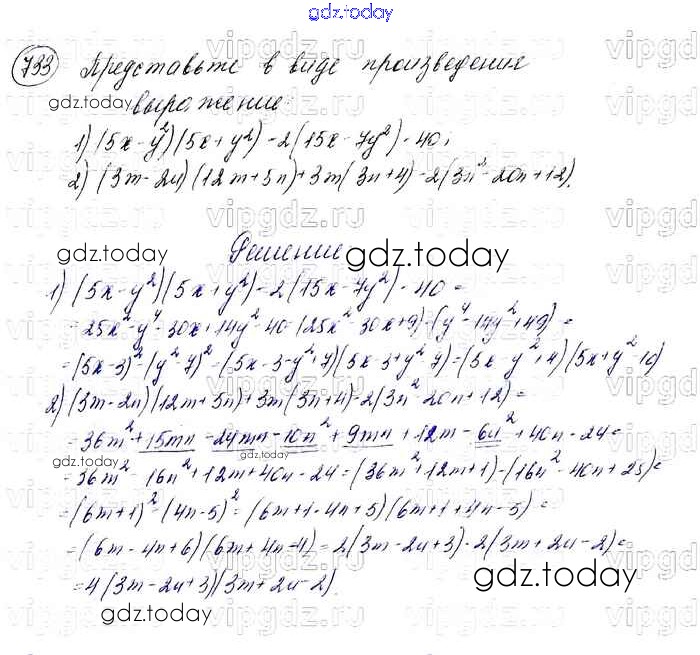 gdz.today
733 Представьте в виде произведения
gdz.today
выражение:
1) (5x-y²)(5x+y²)-2(15x-7y²)-40;
2) (3m-2n)(12m+5n)+3m(3n+4)-2(3n²-20n+12).
Решение
gdz.today
gdz.today
1) (5x-y²)(5x+y²)-2(15x-7y²)-40=
=25x²-y⁴-30x+14y²-40=(25x²-30x+9)-(y⁴-14y²+49)=
=(5x-3)²-(y²-7)²=(5x-3-y²+7)(5x-3+y²-7)=(5x-y²+4)(5x+y²-10)
2) (3m-2n)(12m+5n)+3m(3n+4)-2(3n²-20n+12)=
=36m²+15mn-24mn-10n²+9mn+12m-6n²+40n-24=
gdz.today
=36m²-16n²+12m+40n-24=(36m²+12m+1)-(16n²-40n+25)=
=(6m+1)²-(4n-5)²=(6m+1-4n+5)(6m+1+4n-5)=
=(6m-4n+6)(6m+4n-4)=2(3m-2n+3)·2(3m+2n-2)=
gdz.today
=4(3m-2n+3)(3m+2n-2).
gdz.today
vipgdz.ru